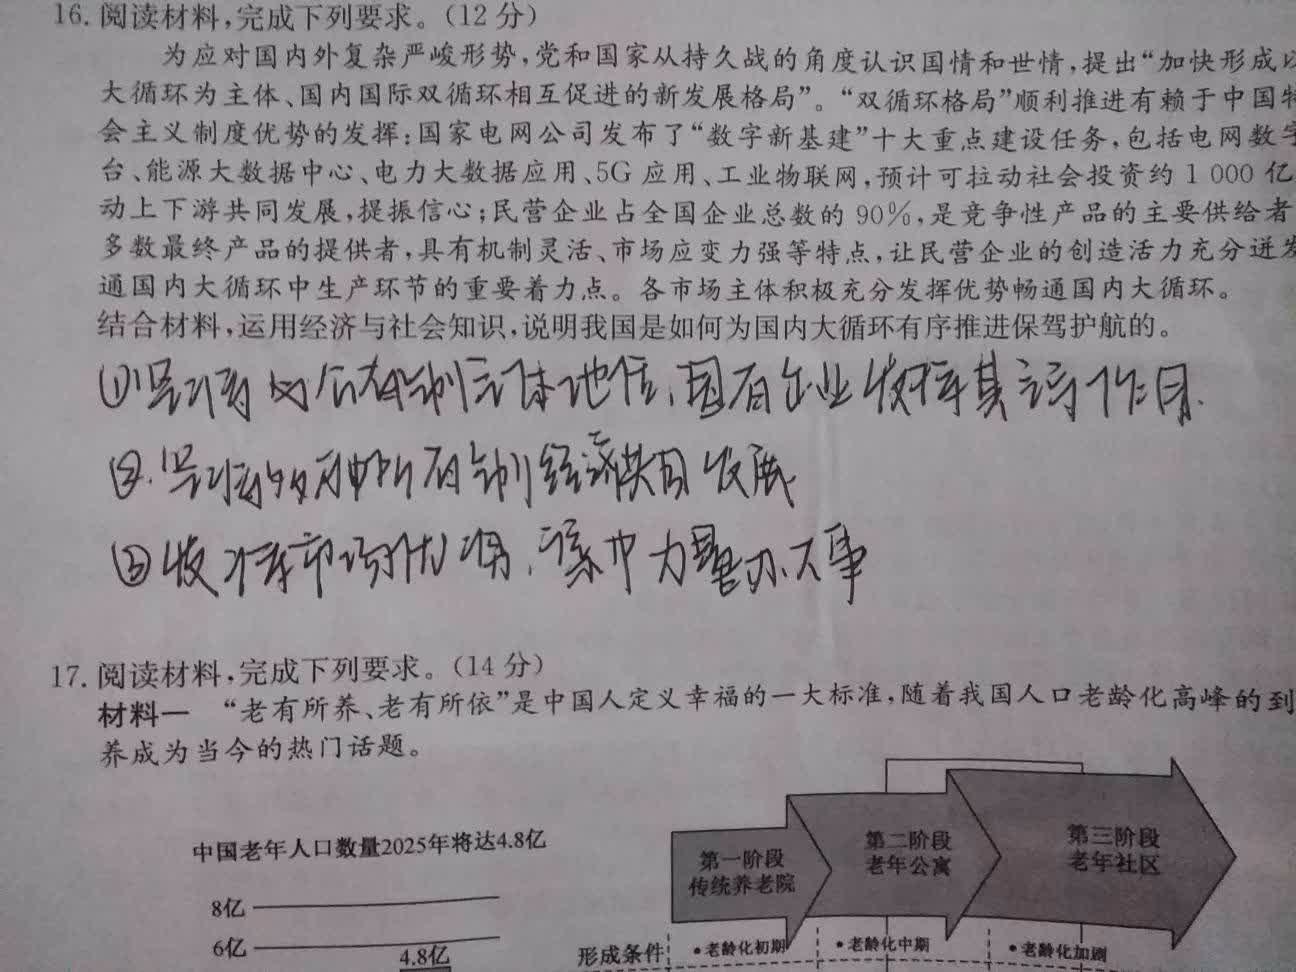 16. 阅读材料,完成下列要求。(12分)
为应对国内外复杂严峻形势,党和国家从持久战的角度认识国情和世情,提出“加快形成以
大循环为主体、国内国际双循环相互促进的新发展格局”。“双循环格局”顺利推进有赖于中国特
会主义制度优势的发挥:国家电网公司发布了“数字新基建”十大重点建设任务,包括电网数字
台、能源大数据中心、电力大数据应用、5G应用、工业物联网,预计可拉动社会投资约1 000亿
动上下游共同发展,提振信心;民营企业占全国企业总数的90%,是竞争性产品的主要供给者
多数最终产品的提供者,具有机制灵活、市场应变力强等特点,让民营企业的创造活力充分迸发
通国内大循环中生产环节的重要着力点。各市场主体积极充分发挥优势畅通国内大循环。
结合材料,运用经济与社会知识,说明我国是如何为国内大循环有序推进保驾护航的。
①坚持以公有制主体地位,国有企业发挥其主导作用.
②.坚持多种所有制经济共同发展
③发挥市场优势,集中力量办大事
17. 阅读材料,完成下列要求。(14分)
材料一 “老有所养、老有所依”是中国人定义幸福的一大标准,随着我国人口老龄化高峰的到
养成为当今的热门话题。
中国老年人口数量2025年将达4.8亿
第一阶段
传统养老院
第二阶段
老年公寓
第三阶段
老年社区
8亿
6亿
4.8亿
形成条件
•老龄化初期
•老龄化中期
•老龄化加剧